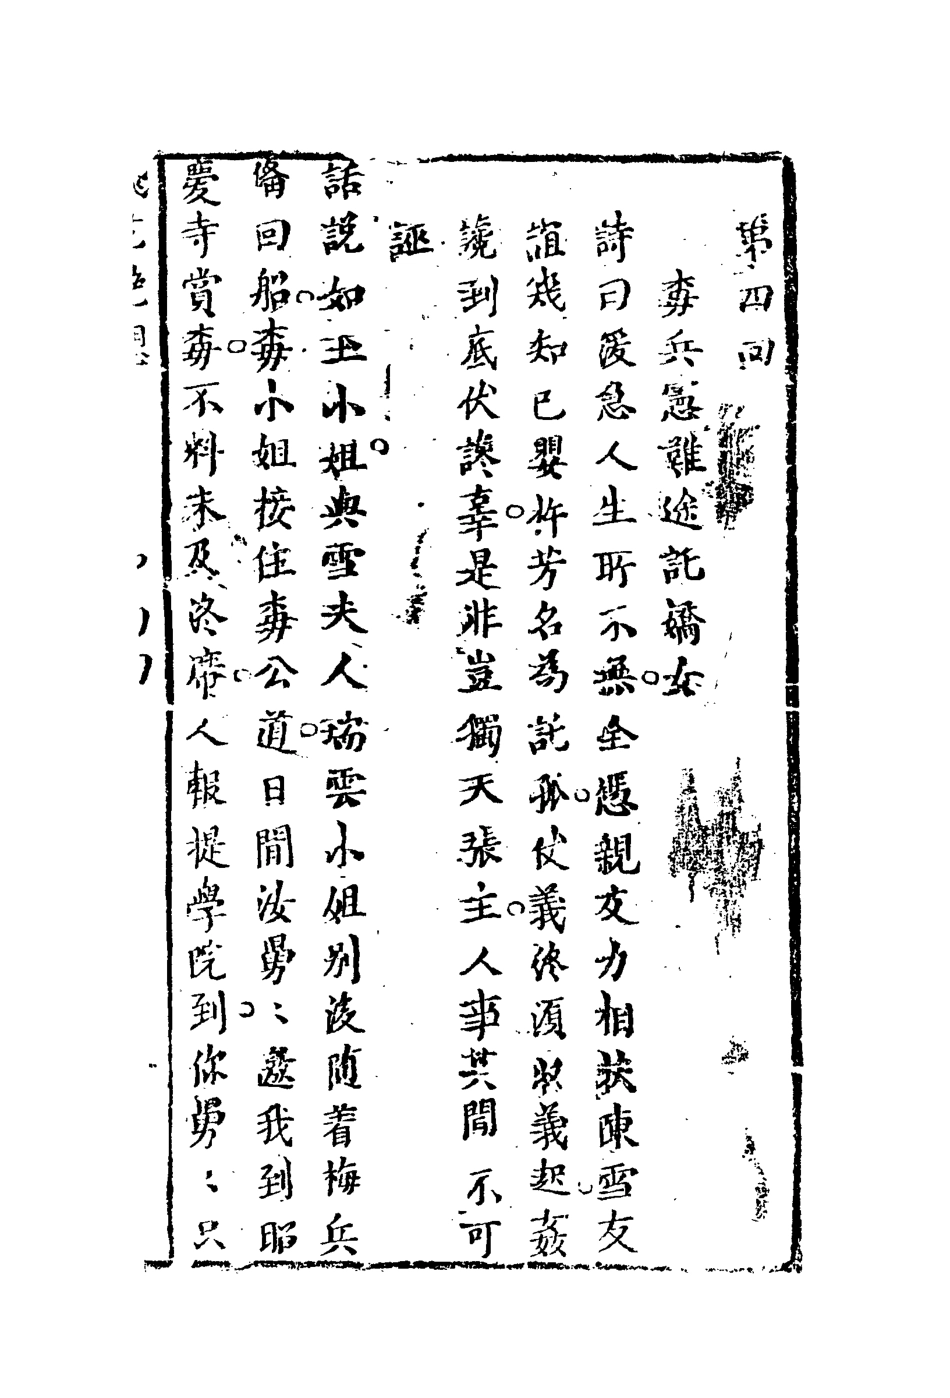 第四回
毒兵憲難途託嬌女
詩曰緩急人生所不無全憑親友力相扶陳雪友
誼幾知已嬰杵芳名爲託孤仗義終須收義起姦
讒到底伏讒辜是非豈獨天張主人事其間不可
誣
話說如玉小姐與雪夫人瑞雲小姐别後随着梅兵
俻回船毒小姐接住毒公道日間汝舅〻邀我到昭
慶寺賞毒不料未及終席人報提學院到你舅〻只